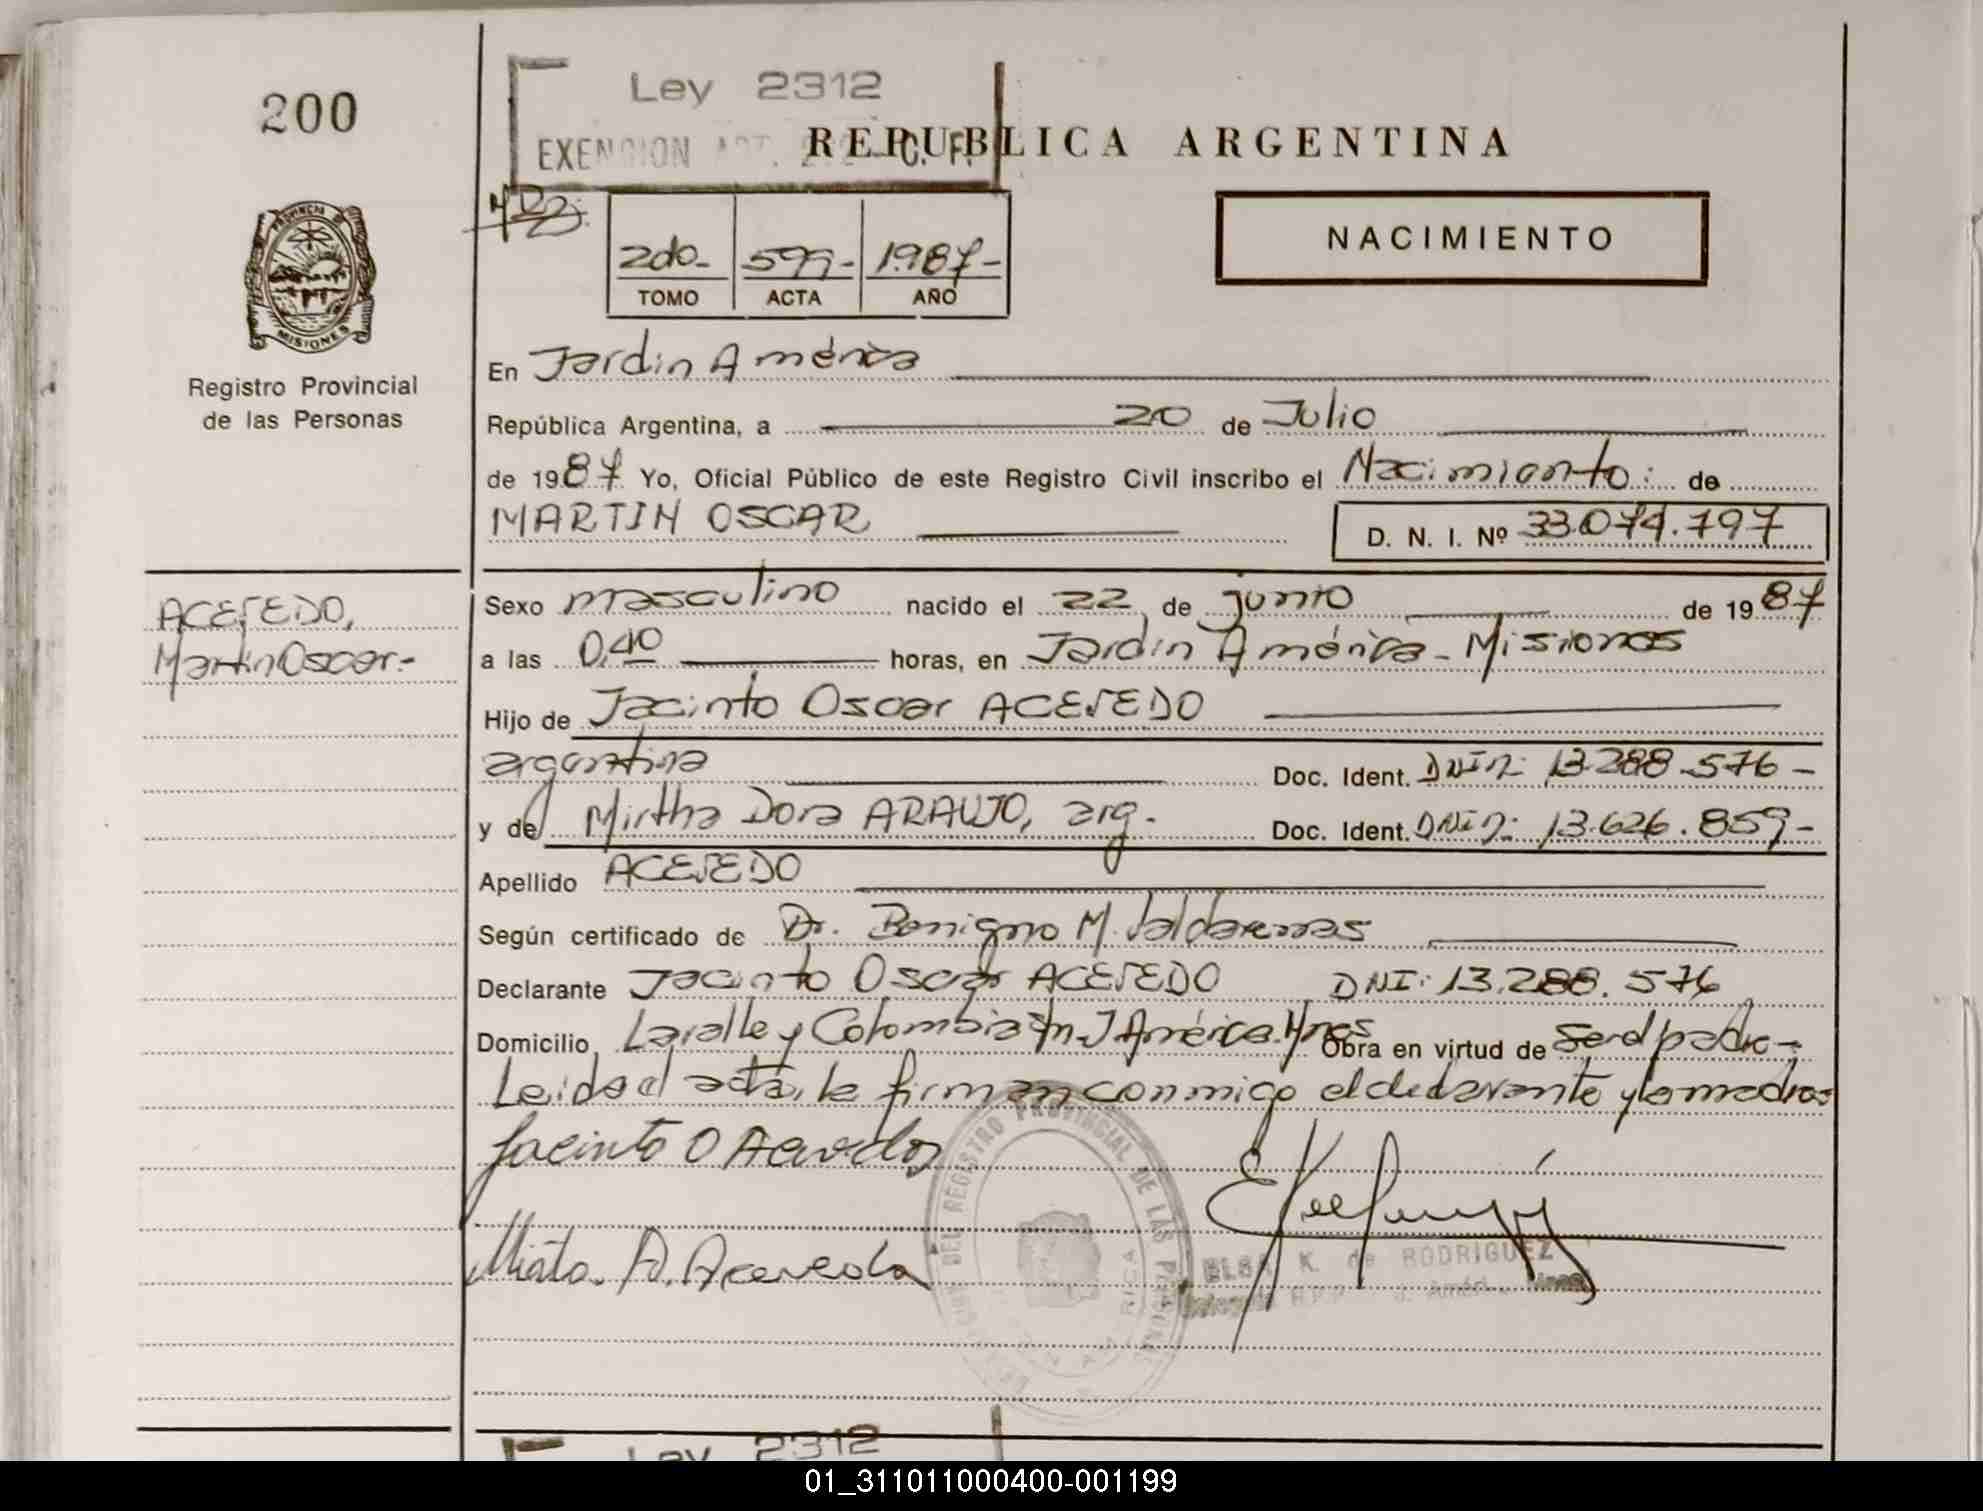 200
Ley 2312
EXENCION ART. C.F.
REPUBLICA ARGENTINA
NACIMIENTO
2do- 599- 1.987-
TOMO ACTA AÑO
PROVINCIA DE MISIONES
Registro Provincial
de las Personas
En Jardin América
República Argentina, a 20 de Julio
de 1987 Yo, Oficial Público de este Registro Civil inscribo el Nacimiento: de
MARTIN OSCAR D. N. I. Nº 33.074.797
ACEVEDO,
Martin Oscar.-
Sexo masculino nacido el 22 de junio de 1987
a las 0,40 horas, en Jardin América - Misiones
Hijo de Jacinto Oscar ACEVEDO
argentina Doc. Ident. DNI n: 13.288.576-
y de Mirtha Dora ARAUJO, arg. Doc. Ident. DNI n: 13.626.859-
Apellido ACEVEDO
Según certificado de Dr. Benigno M. Valdarenas
Declarante Jacinto Oscar ACEVEDO DNI: 13.288.576
Domicilio Lavalle y Colombia s/n J América. Mnes Obra en virtud de Ser el padre-
Leida el acta, la firman conmigo el declarante y la madre
Jacinto O Acevedo
Mirta. D. Acevedo
DEL REGISTRO PROVINCIAL DE LAS PERSONAS
ELBA K. de RODRIGUEZ
Delegada R.P.P. J. Améri. Mnes
Ley 2312
01_311011000400-001199